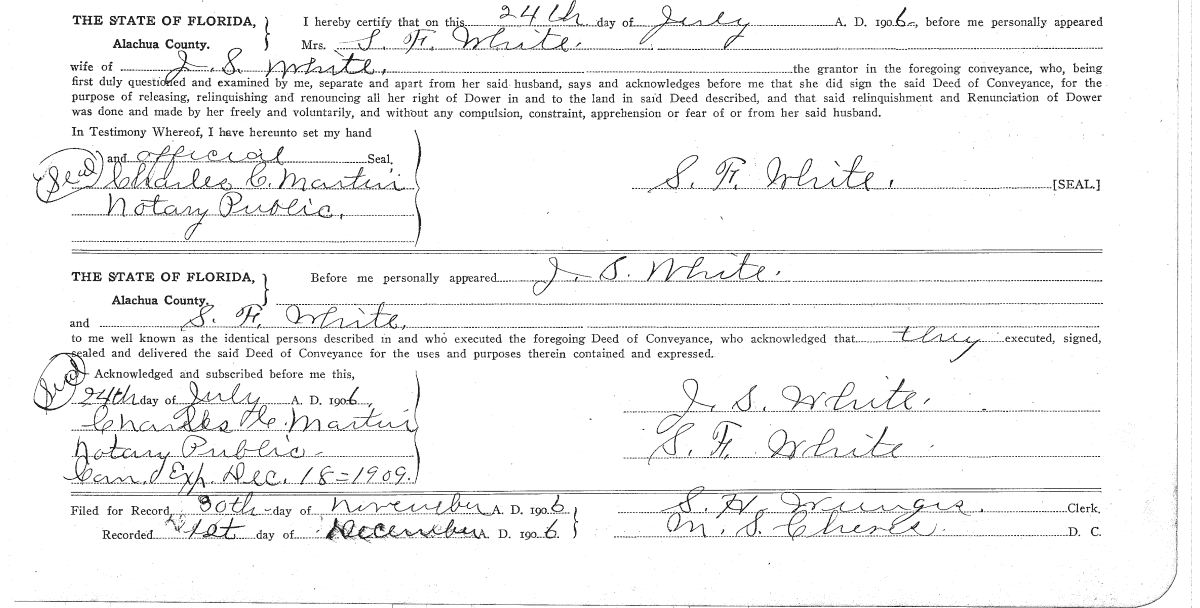 THE STATE OF FLORIDA, } I hereby certify that on this 24th day of July A. D. 1906, before me personally appeared
Alachua County. Mrs. S. F. White.
wife of J. S. White, the grantor in the foregoing conveyance, who, being
first duly questioned and examined by me, separate and apart from her said husband, says and acknowledges before me that she did sign the said Deed of Conveyance, for the
purpose of releasing, relinquishing and renouncing all her right of Dower in and to the land in said Deed described, and that said relinquishment and Renunciation of Dower
was done and made by her freely and voluntarily, and without any compulsion, constraint, apprehension or fear of or from her said husband.
In Testimony Whereof, I have hereunto set my hand
and official Seal,
(Seal) Charles C. Martin S. F. White. [SEAL.]
Notary Public.
THE STATE OF FLORIDA, } Before me personally appeared J. S. White.
Alachua County.
and S. F. White,
to me well known as the identical persons described in and who executed the foregoing Deed of Conveyance, who acknowledged that they executed, signed,
sealed and delivered the said Deed of Conveyance for the uses and purposes therein contained and expressed.
(Seal) Acknowledged and subscribed before me this,
24th day of July A. D. 1906 J. S. White.
Charles C. Martin
Notary Public. S. F. White
Com. Exp. Dec. 18=1909.
Filed for Record 30th day of November A. D. 1906 S. H. Clerk.
Recorded 1st day of December A. D. 1906. M. S. D. C.